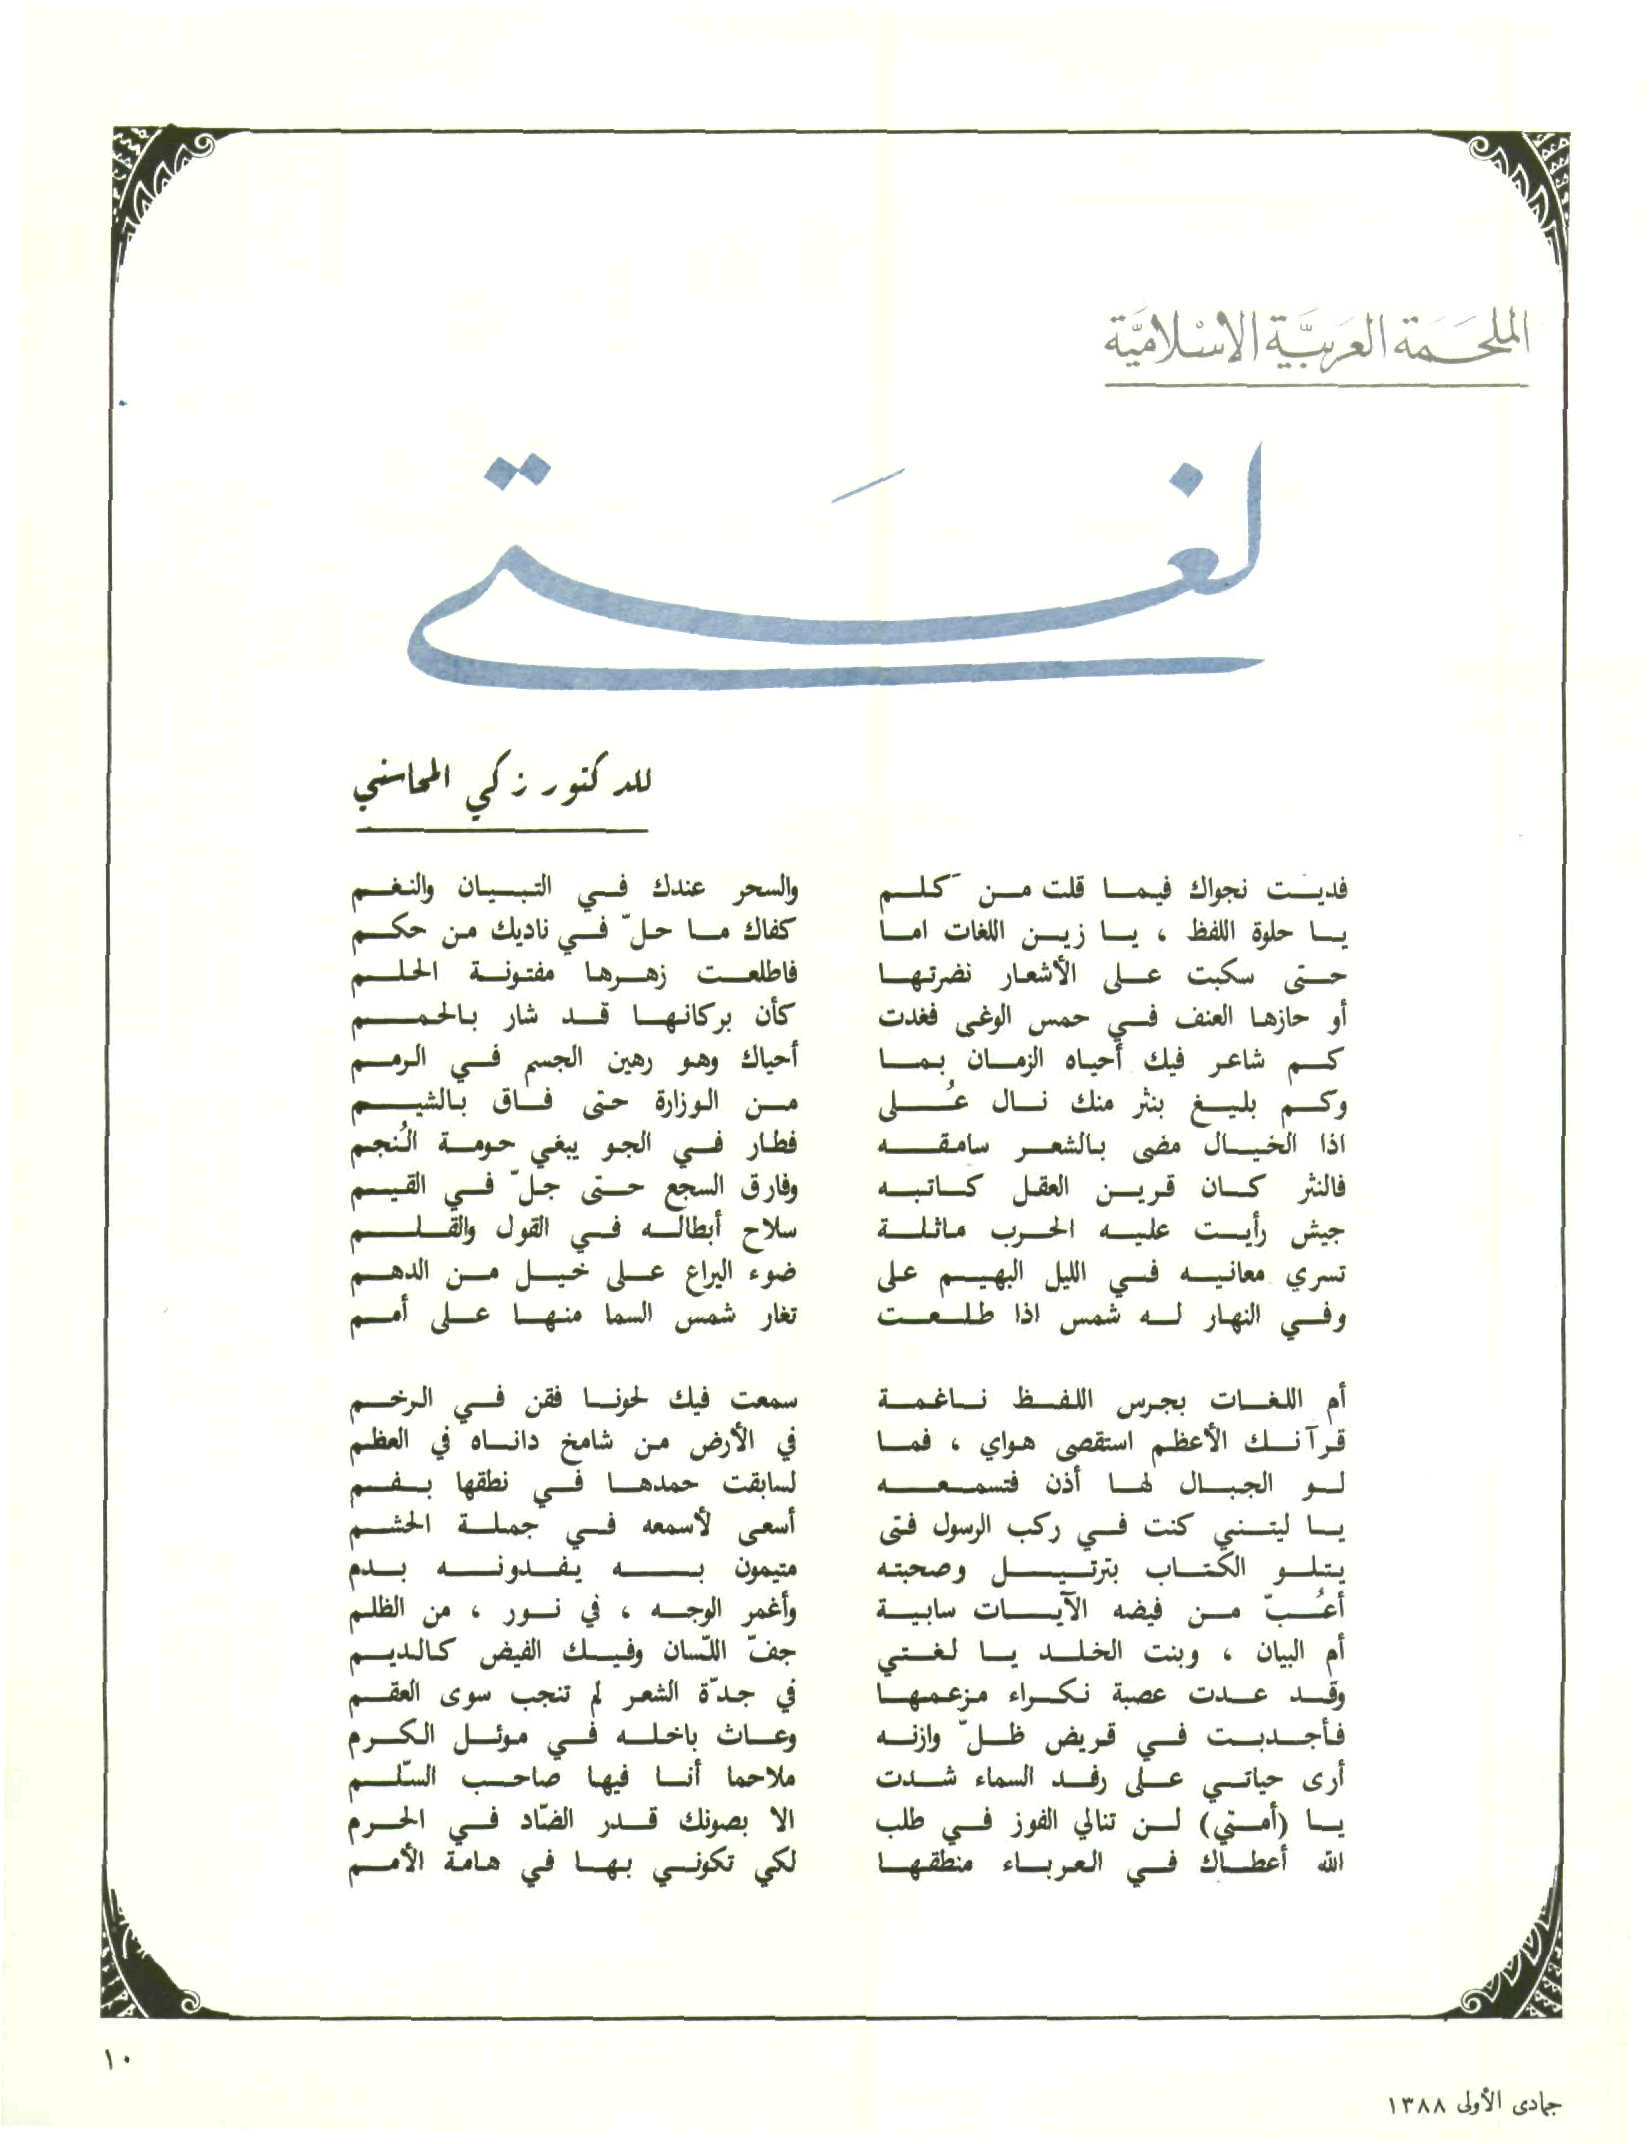 الملحَمَة العَربيَّة الإسْلاميَّة
لغَتي
للدكتور زكي المحاسني
فديت نجواك فيما قلت من كَلم والسحر عندك في التبيان والنغم
يا حلوة اللفظ ، يا زين اللغات اما كفاك ما حلّ في ناديك من حكم
حتى سكبت على الأشعار نضرتها فاطلعت زهرها مفتونة الحلم
أو حازها العنف في حمس الوغى فغدت كأن بركانها قد شار بالحمم
كم شاعر فيك أحياه الزمان بما أحياك وهو رهين الجسم في الرمم
وكم بليغ بنثر منك نال عُلى من الوزارة حتى فاق بالشيم
اذا الخيال مضى بالشعر سامقه فطار في الجو يبغي حومة النُجم
فالنثر كان قرين العقل كاتبه وفارق السجع حتى جلّ في القيم
جيش رأيت عليه الحرب ماثلة سلاح أبطاله في القول والقلم
تسري معانيه في الليل البهيم على ضوء اليراع على خيل من الدهم
وفي النهار له شمس اذا طلعت تغار شمس السما منها على أمم
أم اللغات بجرس اللفظ ناغمة سمعت فيك لحونا فقن في الرخم
قرآنك الأعظم استقصى هواي ، فما في الأرض من شامخ داناه في العظم
لو الجبال لها أذن فتسمعه لسابقت حمدها في نطقها بفم
يا ليتني كنت في ركب الرسول فتى أسعى لأسمعه في جملة الحشم
يتلو الكتاب بترتيل وصحبته متيمون به يفدونه بدم
أعُبّ من فيضه الآيات سابية وأغمر الوجه ، في نور ، من الظلم
أم البيان ، وبنت الخلد يا لغتي جفّ اللّسان وفيك الفيض كالديم
وقد عدت عصبة نكراء مزعمها في جدّة الشعر لم تنجب سوى العقم
فأجدبت في قريض ظلّ وازنه وعاث باخله في موئل الكرم
أرى حياتي على رفد السماء شدت ملاحما أنا فيها صاحب السّلم
يا (أمتي) لن تنالي الفوز في طلب الا بصونك قدر الضّاد في الحرم
الله أعطاك في العرباء منطقها لكي تكوني بها في هامة الأمم
١٠
جمادى الأولى ١٣٨٨